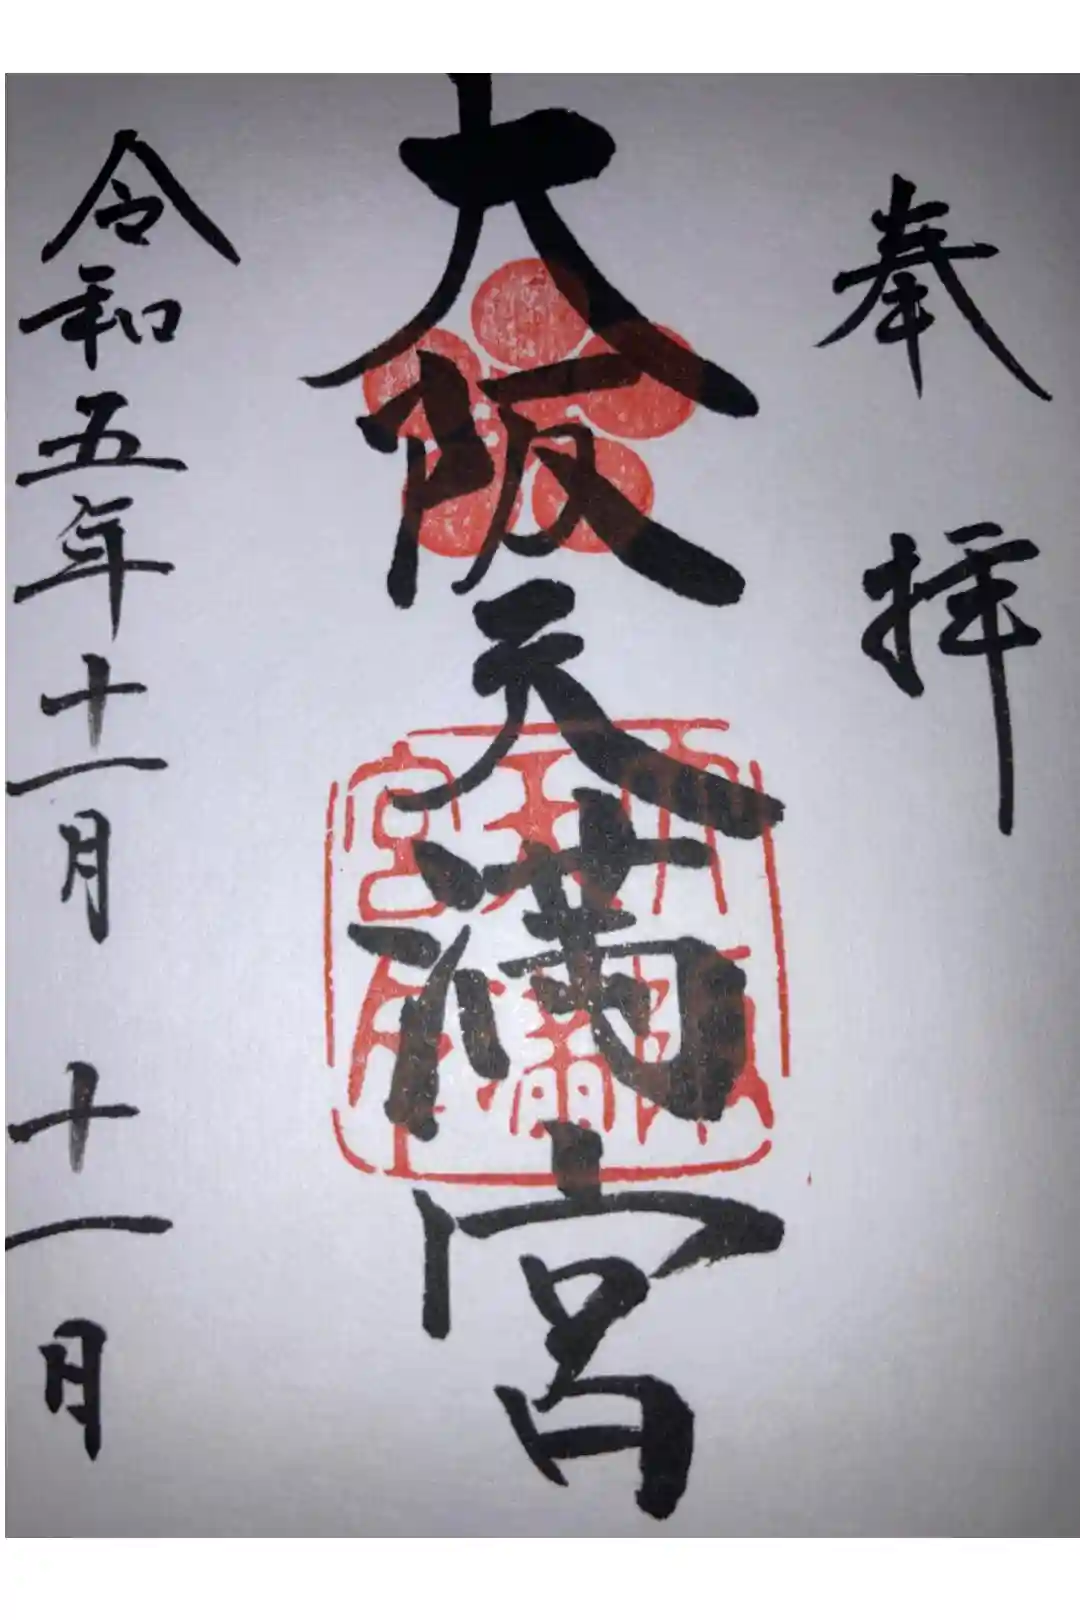 奉拝
大阪天満宮
令和五年十一月十一日
大阪
天満
宮印